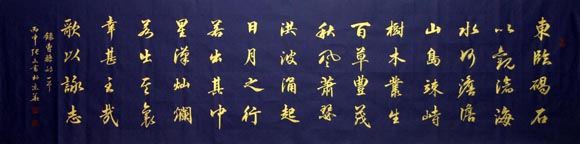 東臨碣石
以觀滄海
水何澹澹
山島竦峙
樹木叢生
百草豐茂
秋風蕭瑟
洪波涌起
日月之行
若出其中
星漢灿爛
若出其裏
幸甚至哉
歌以詠志
錄曹操詩
丙申 書於京華